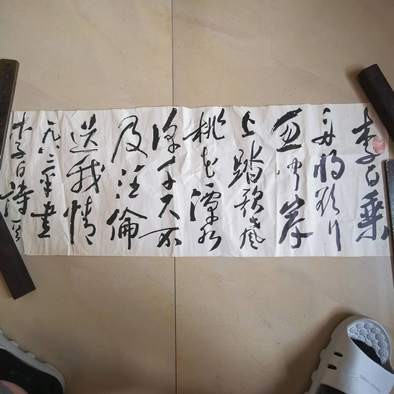 李白乘
舟将欲行
忽闻岸
上踏歌声
桃花潭水
深千尺不
及汪倫
送我情
一九八二年書
李白詩